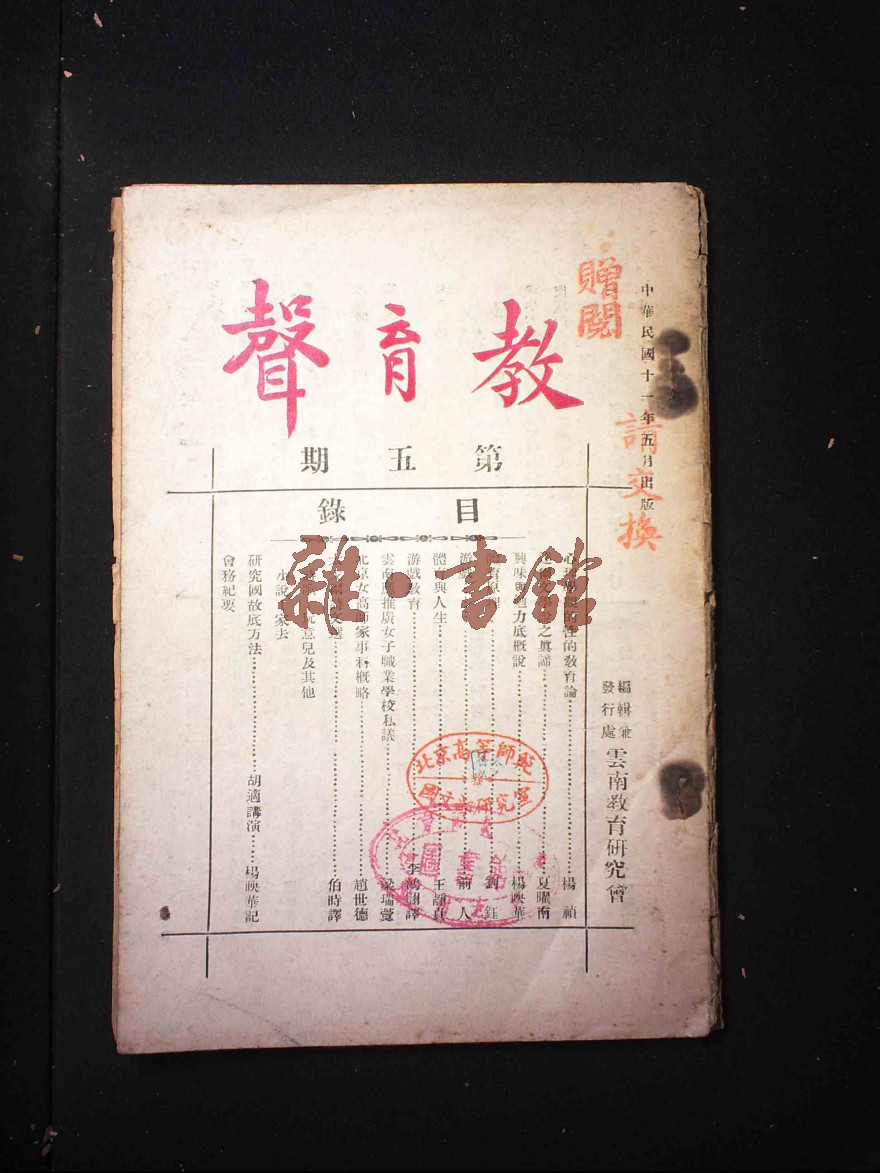 中華民國十一年五月出版
贈閱
請交換
教育聲
第五期
目錄
編輯兼
發行處
雲南教育研究會
的教育論 楊禎
之真諦 夏曜南
興味與努力底概說 楊映華
劉鈺
前人
體育與人生 王靜貞
游戲教育 李鴻翔譯
雲南應推廣女子職業學校私議
北京女高師家事科概略 趙世德
伯時譯
意兒及其他
小說 家去
研究國故底方法 胡適講演 楊映華記
會務紀要
雜·書館
北京高等師範
國文部研究室